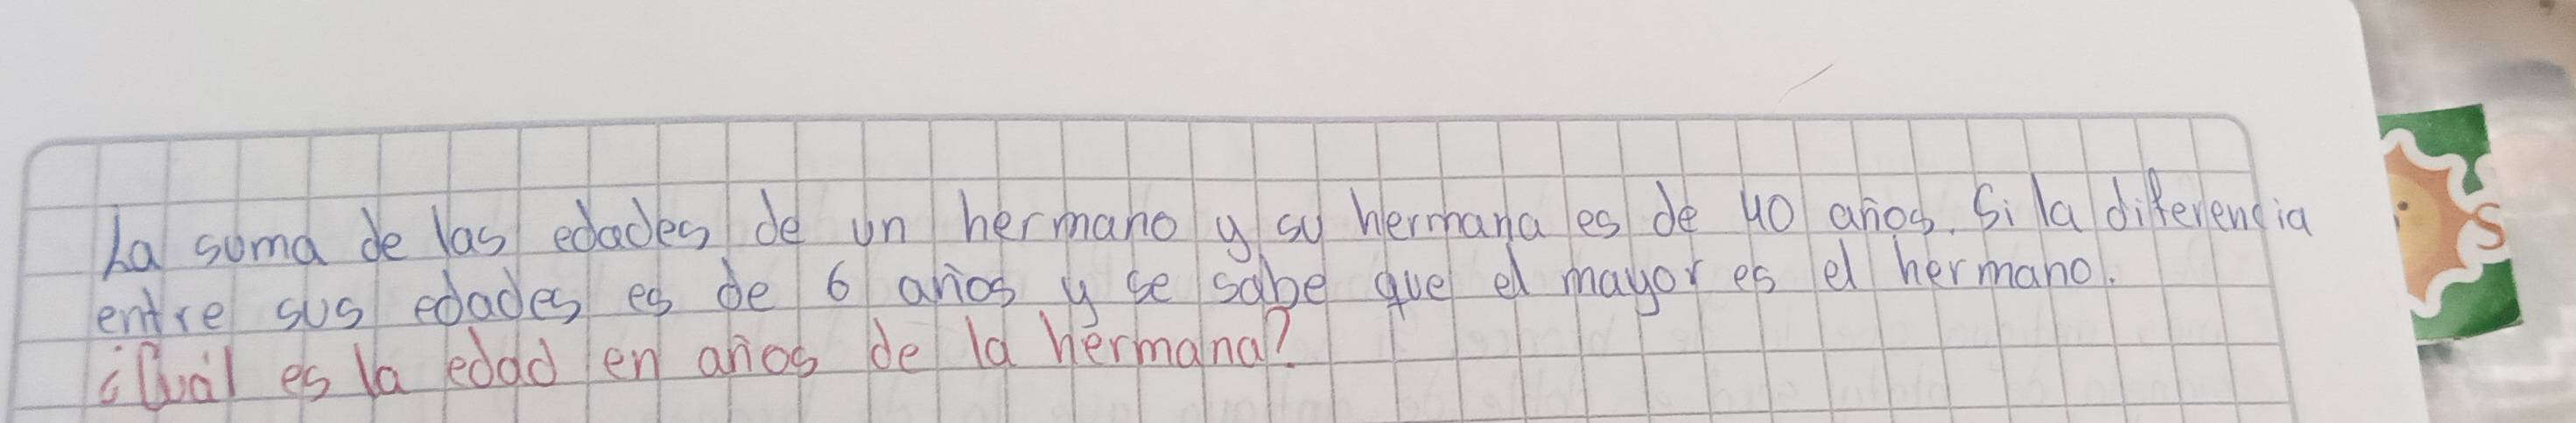 La suma de las edades de un hermano y su hermana es de 40 años. Si la diferencia
entre sus edades es de 6 años y se sabe que el mayor es el hermano.
¿Cuál es la edad en años de la hermana?
S